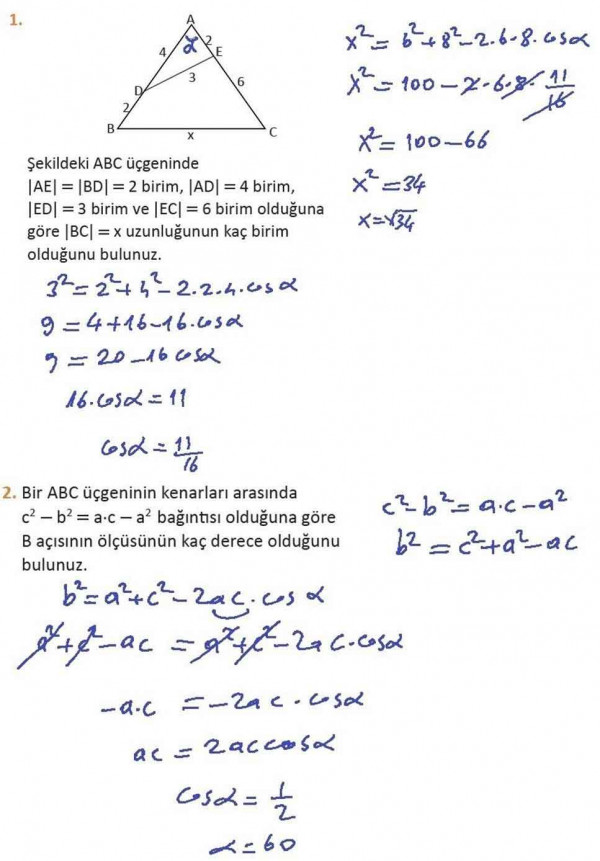 1.
A
α
4
2
E
D
3
6
2
B
x
C
Şekildeki ABC üçgeninde
|AE| = |BD| = 2 birim, |AD| = 4 birim,
|ED| = 3 birim ve |EC| = 6 birim olduğuna
göre |BC| = x uzunluğunun kaç birim
olduğunu bulunuz.
3² = 2² + 4² - 2.2.4.cosα
9 = 4 + 16 - 16.cosα
9 = 20 - 16 cosα
16.cosα = 11
cosα = 11/16
x² = 6² + 8² - 2.6.8.cosα
x² = 100 - 2.6.8. 11/16
x² = 100 - 66
x² = 34
x = √34
2. Bir ABC üçgeninin kenarları arasında
c² – b² = a·c – a² bağıntısı olduğuna göre
B açısının ölçüsünün kaç derece olduğunu
bulunuz.
c² - b² = a.c - a²
b² = c² + a² - ac
b² = a² + c² - 2ac.cosα
a² + c² - ac = a² + c² - 2ac.cosα
-a.c = -2ac.cosα
ac = 2accosα
cosα = 1/2
α = 60